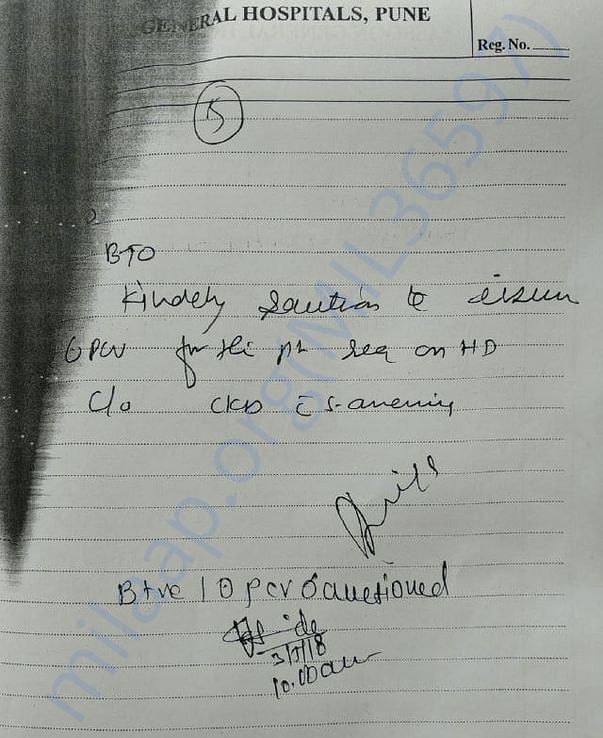 GENERAL HOSPITALS, PUNE
Reg. No.
5
BTO
Kindely sanction to issue
PCV for the pt on HD
C/o CKD c̄ s. anemia
B+ve 10 PCV sanctioned
3/5/18
10.00am
milaap.org(MIL36597)